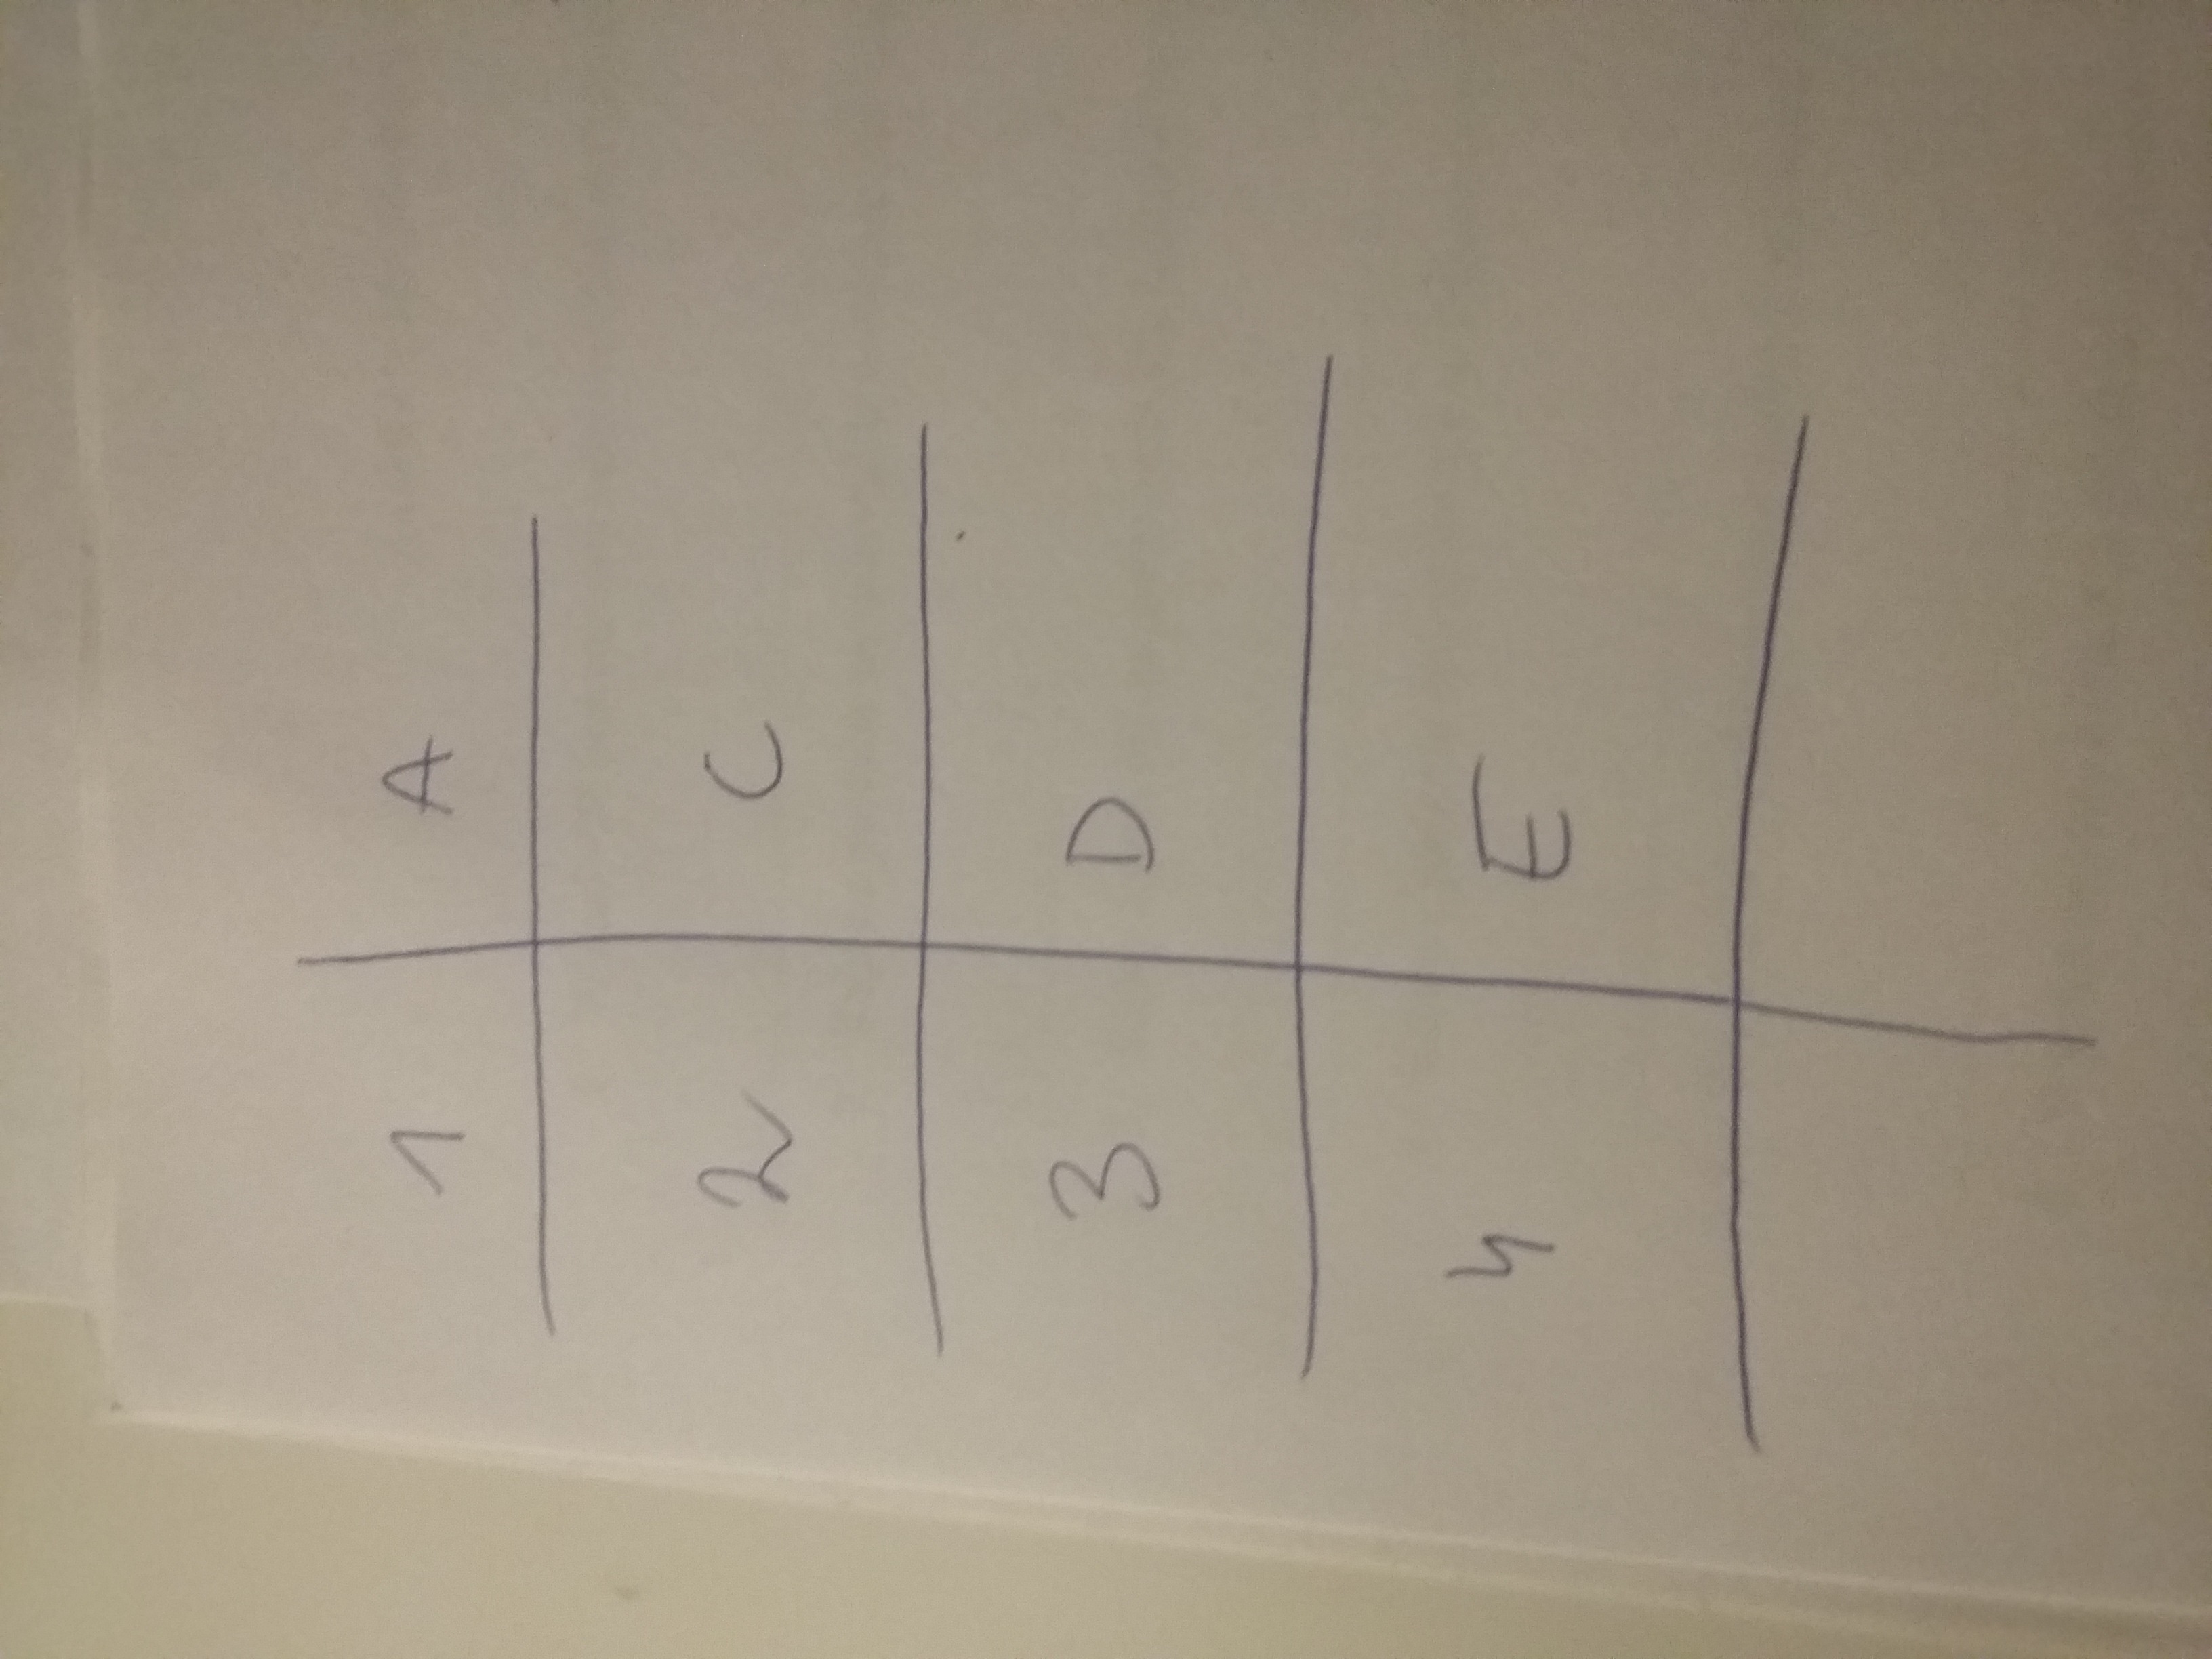 1 A
2 C
3 D
4 E